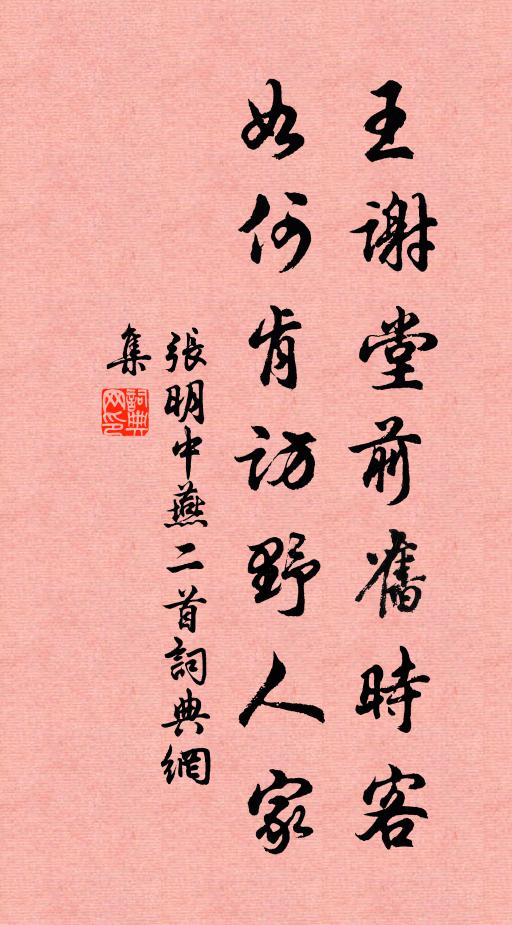 王謝堂前舊時客
如何肯訪野人家
張明中燕二首詞典網
集
詞典網印